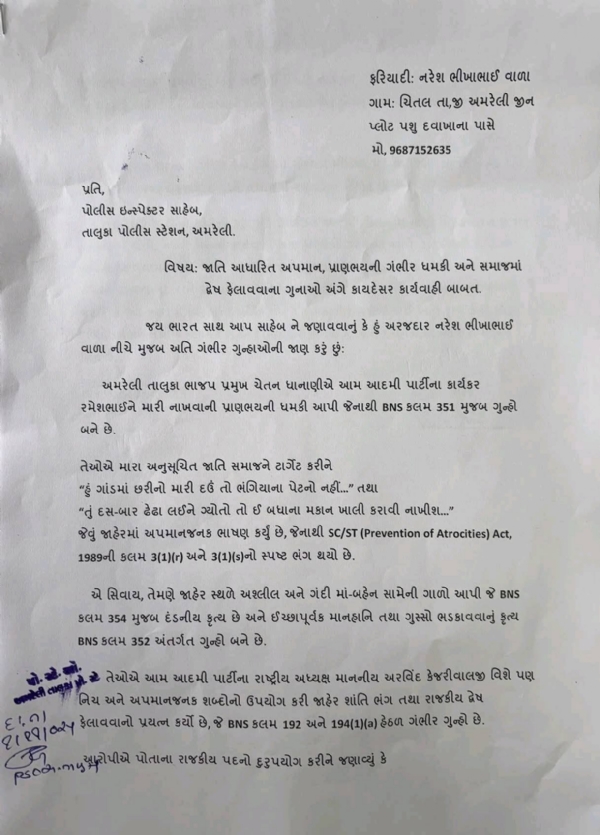 ફરિયાદી: નરેશ ભીખાભાઈ વાળા
ગામ: ચિતલ તા,જી અમરેલી જીન
પ્લોટ પશુ દવાખાના પાસે
મો, 9687152635
પ્રતિ,
પોલીસ ઇન્સ્પેક્ટર સાહેબ,
તાલુકા પોલીસ સ્ટેશન, અમરેલી.
વિષય: જાતિ આધારિત અપમાન, પ્રાણભયની ગંભીર ધમકી અને સમાજમાં
દ્વેષ ફેલાવવાના ગુનાઓ અંગે કાયદેસર કાર્યવાહી બાબત.
જય ભારત સાથ આપ સાહેબ ને જણાવવાનું કે હું અરજદાર નરેશ ભીખાભાઈ
વાળા નીચે મુજબ અતિ ગંભીર ગુન્હાઓની જાણ કરું છું:
અમરેલી તાલુકા ભાજપ પ્રમુખ ચેતન ધાનાણીએ આમ આદમી પાર્ટીના કાર્યકર
રમેશભાઈને મારી નાખવાની પ્રાણભયની ધમકી આપી જેનાથી BNS કલમ 351 મુજબ ગુન્હો
બને છે.
તેઓએ મારા અનુસૂચિત જાતિ સમાજને ટાર્ગેટ કરીને
“હું ગાંડમાં છરીનો મારી દઉં તો ભંગિયાના પેટનો નહીં...” તથા
“તું દસ-બાર ઢેઢા લઈને ગ્યોતો તો ઈ બધાના મકાન ખાલી કરાવી નાખીશ...”
જેવું જાહેરમાં અપમાનજનક ભાષણ કર્યું છે, જેનાથી SC/ST (Prevention of Atrocities) Act,
1989ની કલમ 3(1)(r) અને 3(1)(s)નો સ્પષ્ટ ભંગ થયો છે.
એ સિવાય, તેમણે જાહેર સ્થળે અશ્લીલ અને ગંદી માં-બહેન સામેની ગાળો આપી જે BNS
કલમ 354 મુજબ દંડનીય કૃત્ય છે અને ઈચ્છાપૂર્વક માનહાનિ તથા ગુસ્સો ભડકાવવાનું કૃત્ય
BNS કલમ 352 અંતર્ગત ગુન્હો બને છે.
પો. સ્ટે. ઓ.
અમરેલી તાલુકા પો. સ્ટે
તેઓએ આમ આદમી પાર્ટીના રાષ્ટ્રીય અધ્યક્ષ માનનીય અરવિંદ કેજરીવાલજી વિશે પણ
નિચ અને અપમાનજનક શબ્દોનો ઉપયોગ કરી જાહેર શાંતિ ભંગ તથા રાજકીય દ્વેષ
ફેલાવવાનો પ્રયત્ન કર્યો છે, જે BNS કલમ 192 અને 194(1)(a) હેઠળ ગંભીર ગુન્હો છે.
આરોપીએ પોતાના રાજકીય પદનો દુરુપયોગ કરીને જણાવ્યું કે